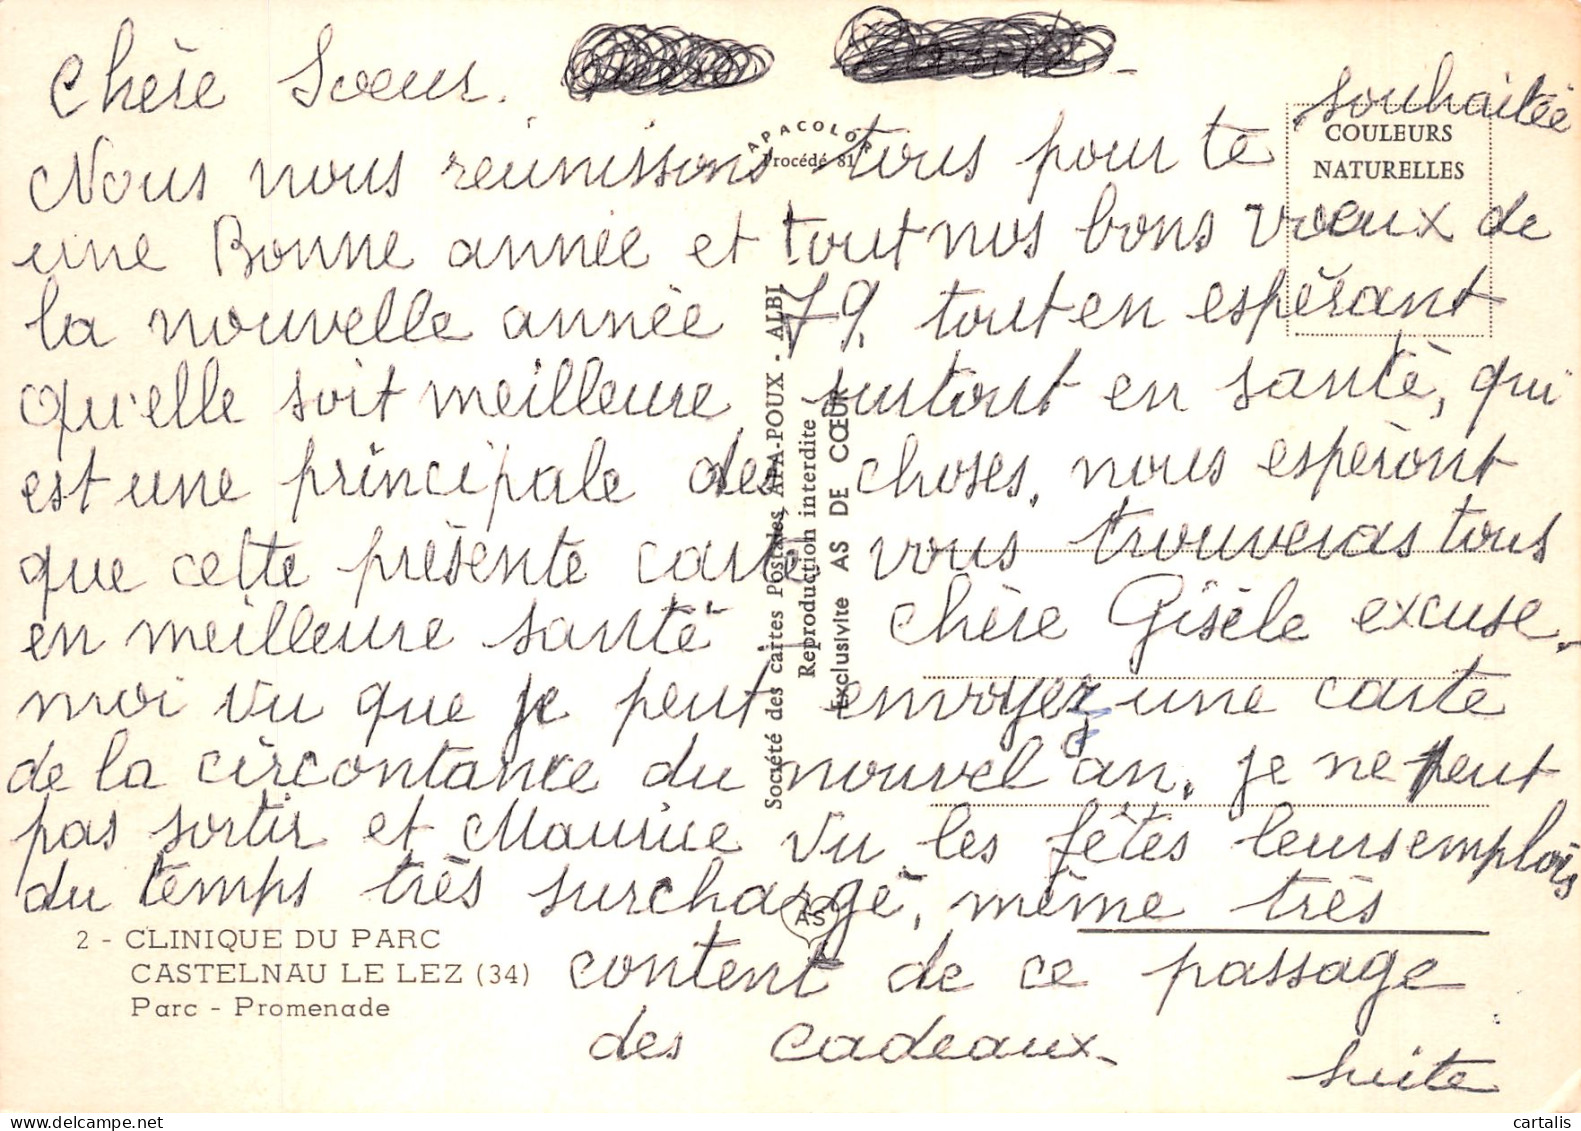 Chère Sœur.
souhaitée
Nous nous réunissons tous pour te
une Bonne année et tout nos bons vœux de
la nouvelle année 79, tout en espérant
qu'elle soit meilleure surtout en santé, qui
est une principale des choses, nous espéront
que cette présente carte vous trouveras tous
en meilleure santé - chère Gisèle excuse-
moi vu que je peut envoyez une carte
de la circontance du nouvel an, je ne peut
pas sortir et Maurice vu les fêtes leurs emplois
du temps très surchargé, même très
content de ce passage
des cadeaux -
suite
APACOLOR
Procédé 81
COULEURS
NATURELLES
Société des cartes Postales, APA-POUX - ALBI
Reproduction interdite
Exclusivite AS DE CŒUR
AS
2 - CLINIQUE DU PARC
CASTELNAU LE LEZ (34)
Parc - Promenade
cartalis